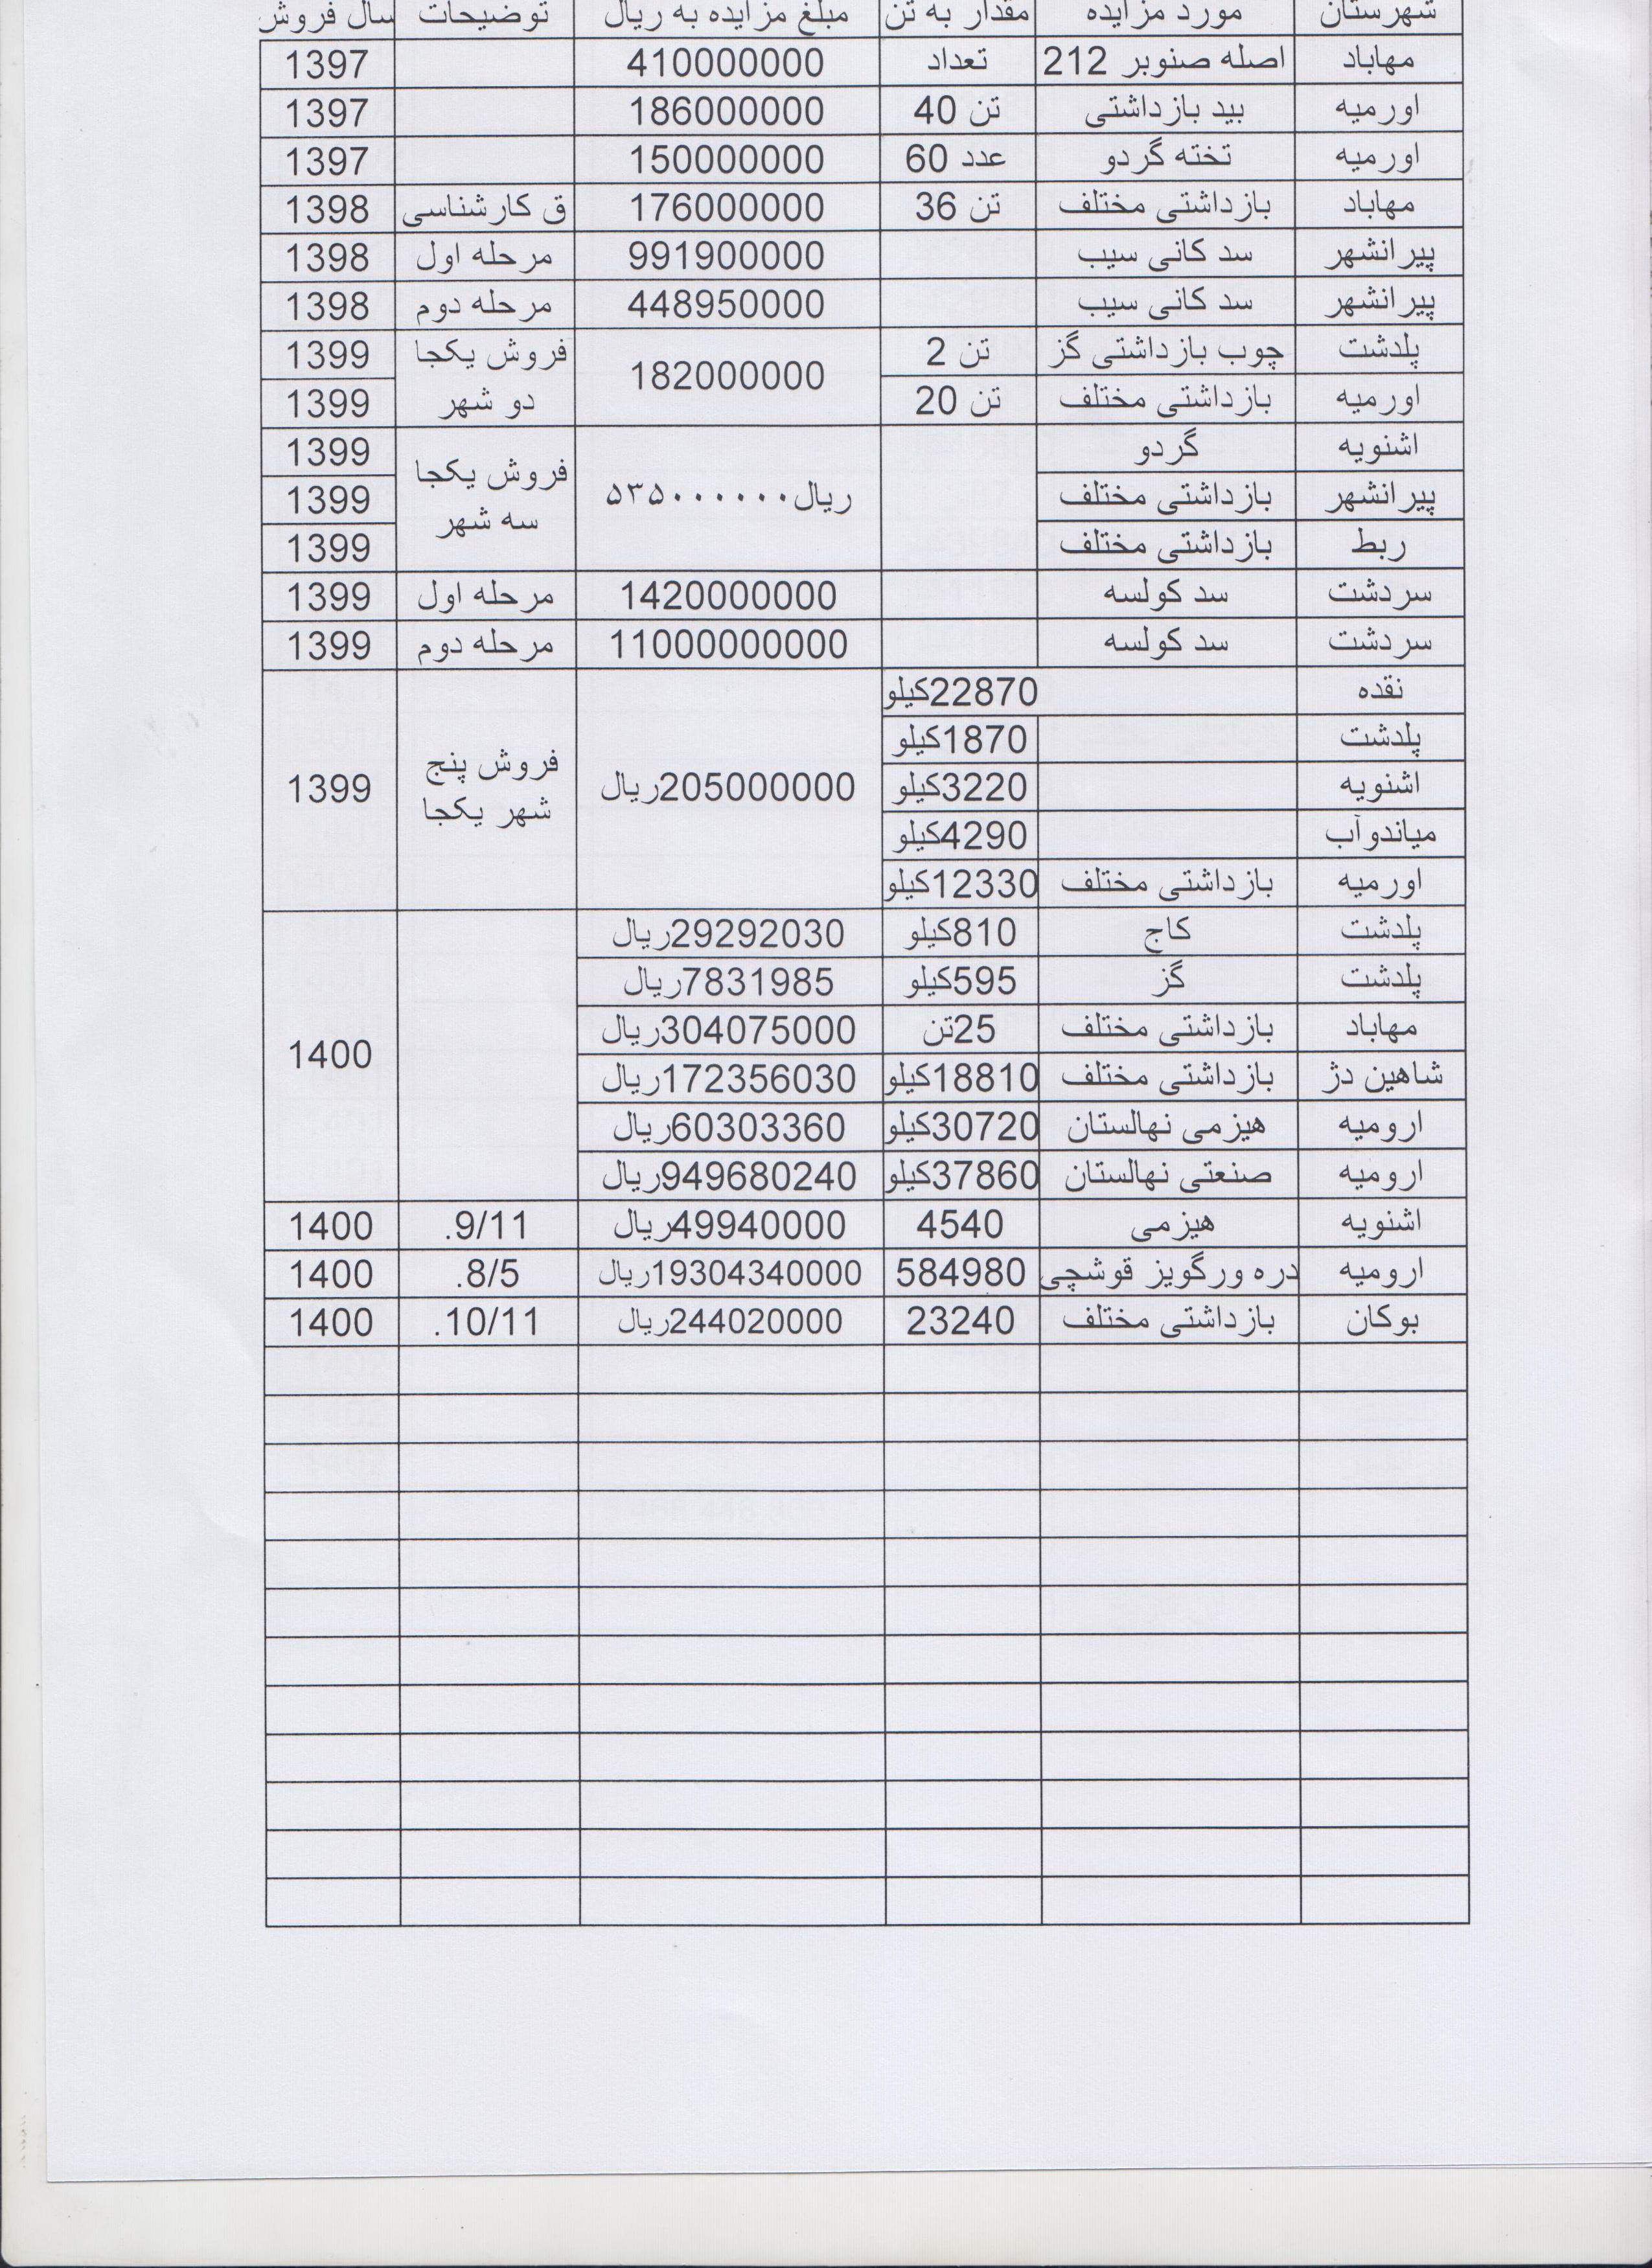 شهرستان مورد مزایده مقدار به تن مبلغ مزایده به ریال توضیحات سال فروش
مهاباد اصله صنوبر 212 تعداد 410000000 1397
اورمیه بید بازداشتی تن 40 186000000 1397
اورمیه تخته گردو عدد 60 150000000 1397
مهاباد بازداشتی مختلف تن 36 176000000 ق کارشناسی 1398
پیرانشهر سد کانی سیب 991900000 مرحله اول 1398
پیرانشهر سد کانی سیب 448950000 مرحله دوم 1398
پلدشت چوب بازداشتی گز تن 2 182000000 فروش یکجا 1399
اورمیه بازداشتی مختلف تن 20 دو شهر 1399
اشنویه گردو 1399
پیرانشهر بازداشتی مختلف ریال۵۳۵۰۰۰۰۰۰ فروش یکجا سه شهر 1399
ربط بازداشتی مختلف 1399
سردشت سد کولسه 1420000000 مرحله اول 1399
سردشت سد کولسه 11000000000 مرحله دوم 1399
نقده 22870کیلو
پلدشت 1870کیلو
اشنویه 3220کیلو 205000000ریال فروش پنج شهر یکجا 1399
میاندوآب 4290کیلو
اورمیه بازداشتی مختلف 12330کیلو
پلدشت کاج 810کیلو 29292030ریال
پلدشت گز 595کیلو 7831985ریال
مهاباد بازداشتی مختلف 25تن 304075000ریال 1400
شاهین دژ بازداشتی مختلف 18810کیلو 172356030ریال
ارومیه هیزمی نهالستان 30720کیلو 60303360ریال
ارومیه صنعتی نهالستان 37860کیلو 949680240ریال
اشنویه هیزمی 4540 49940000ریال .9/11 1400
ارومیه دره ورگویز قوشچی 584980 19304340000ریال .8/5 1400
بوکان بازداشتی مختلف 23240 244020000ریال .10/11 1400